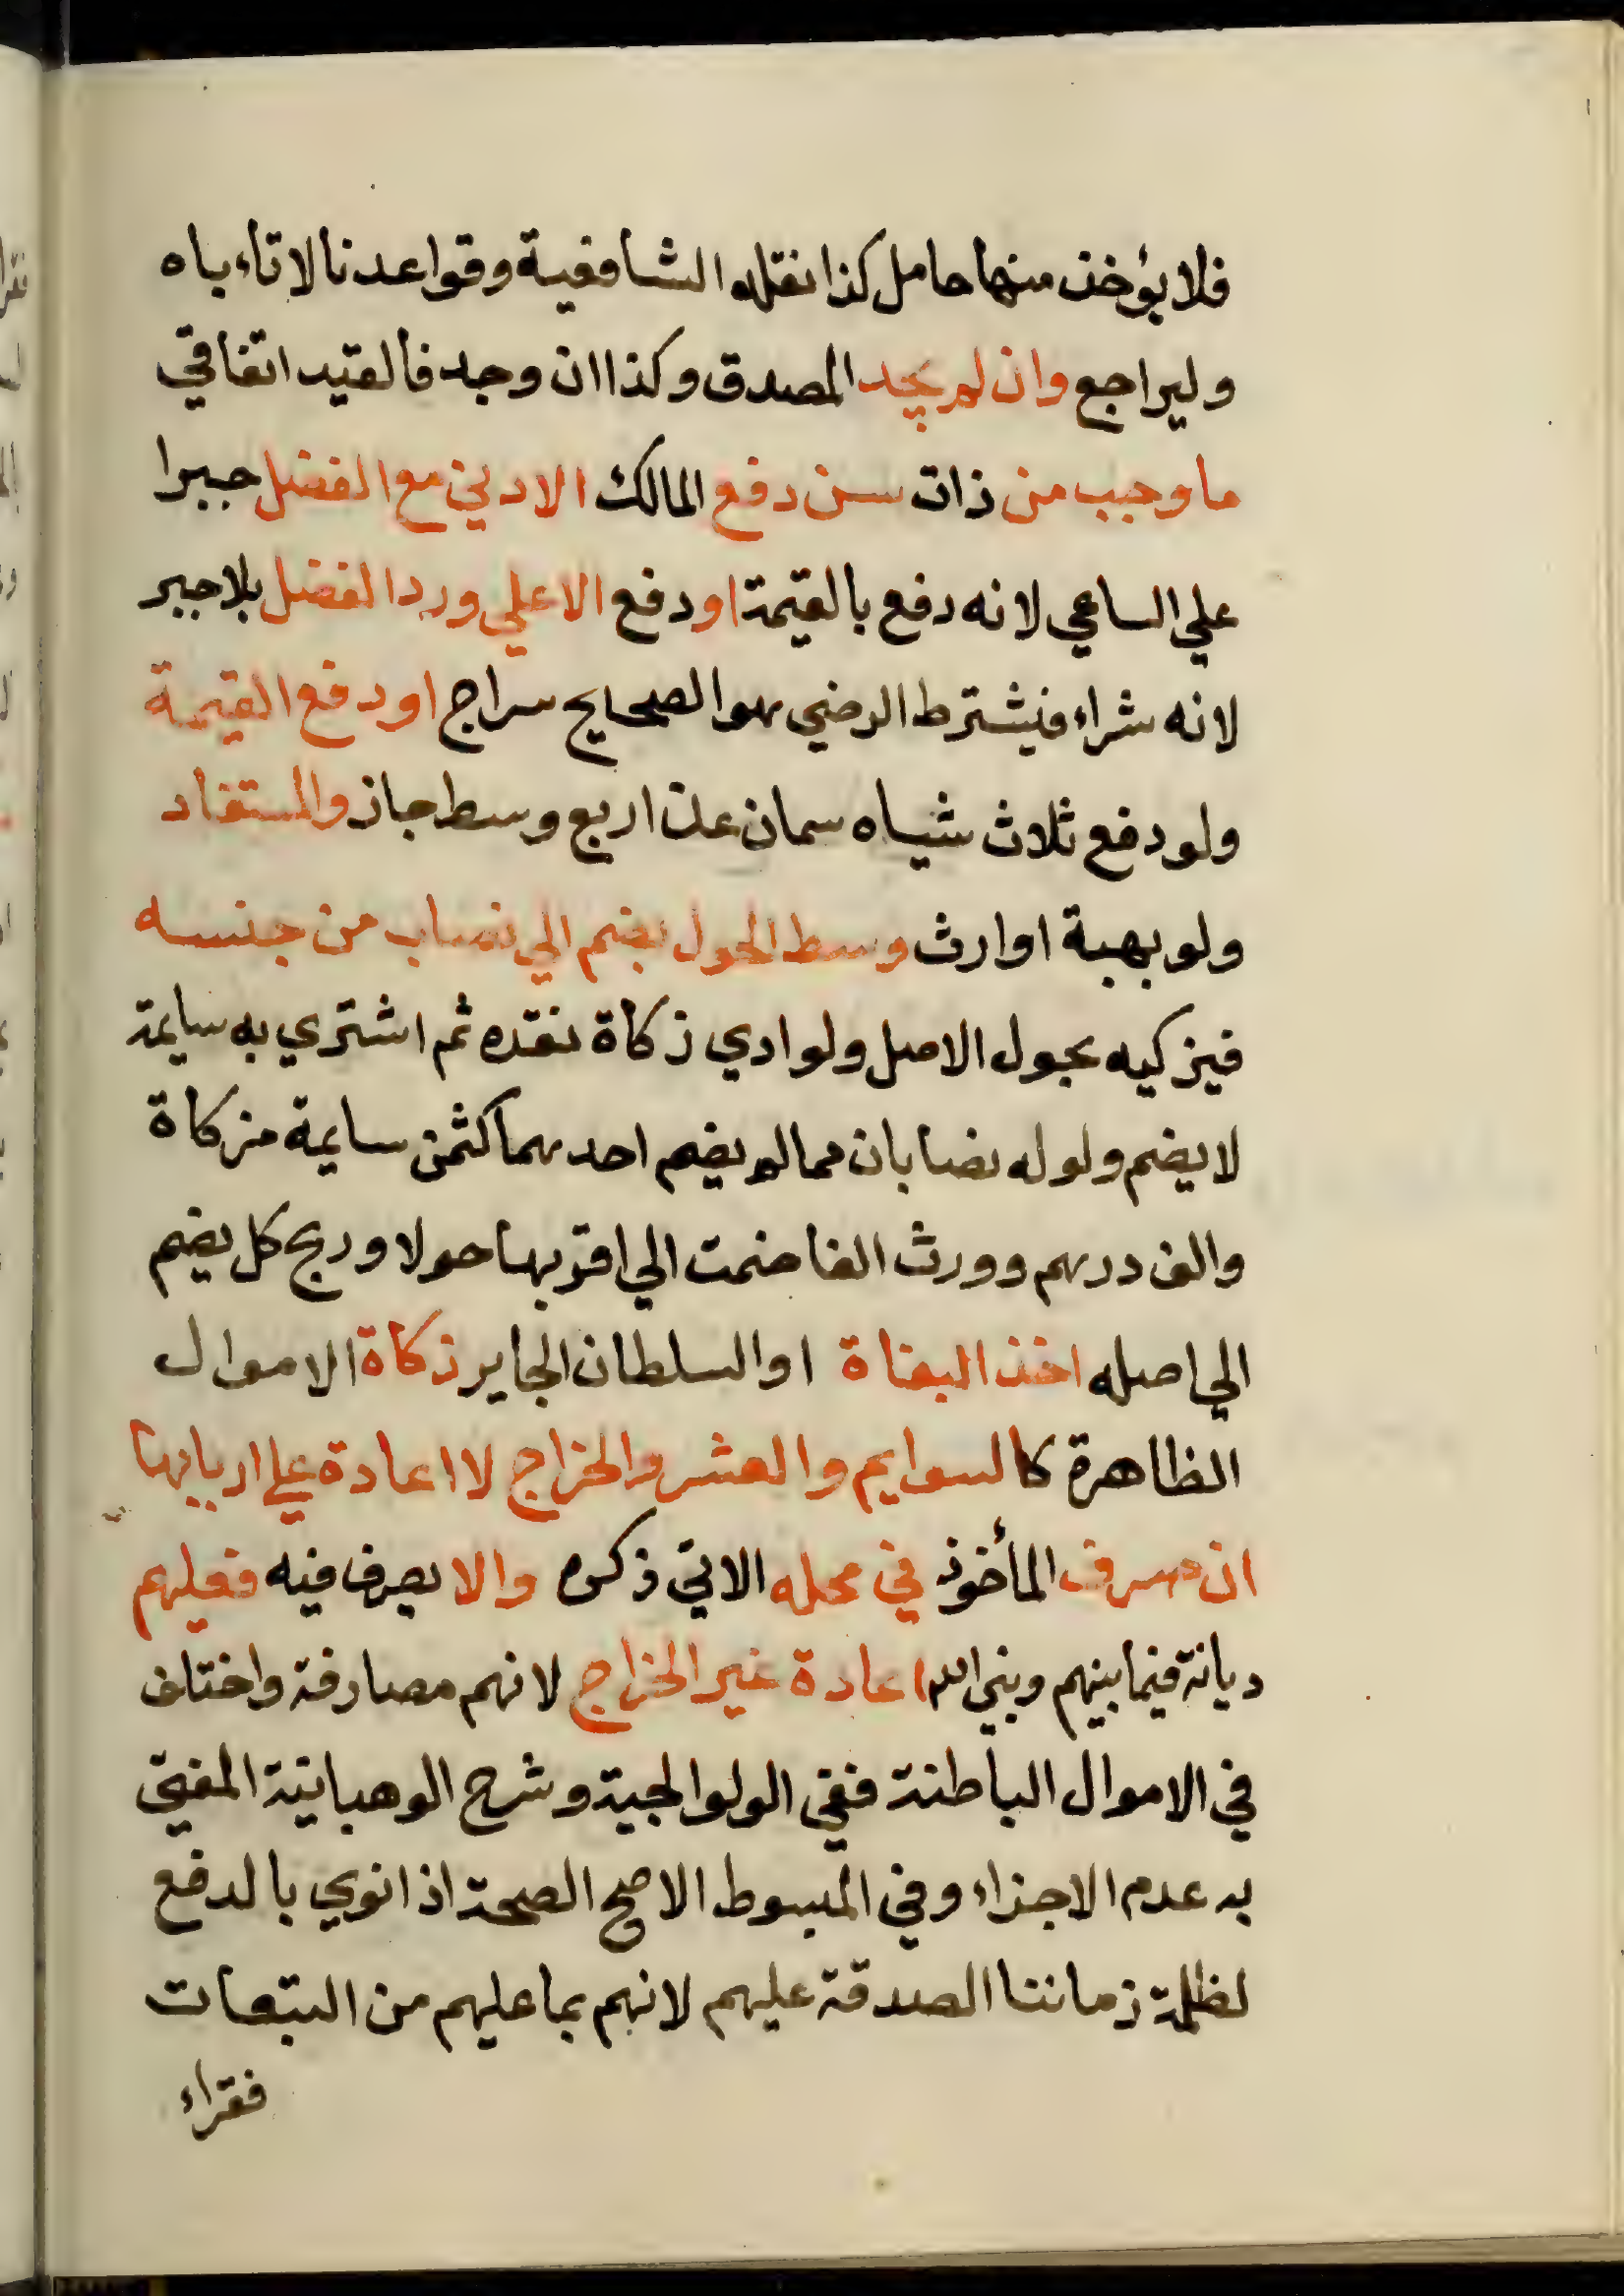 فلا يؤخذ منها حامل كذا نقله الشافعية وقواعدنا لا تاءباه
وليراجع وان لم يجد المصدق وكذا ان وجد فالقيد اتفاقي
ما وجب من ذات سن دفع المالك الادني مع الفضل جبرا
علي الساعي لانه دفع بالقيمة او دفع الاعلي ورد الفضل بلا جبر
لانه شراء فيشترط الرضي هو الصحايح سراج او دفع القيمة
ولو دفع ثلاث شياه سمان عن اربع وسط جاز والمستفاد
ولو بهبة او ارث وسط الحول يضم الي نصاب من جنسه
فيزكيه بحول الاصل ولو ادي زكاة نقده ثم اشتري به سايمة
لا يضم ولو له نصابان مما لم يضم احدهما كثمن سايمة مزكاة
والف درهم وورث الفا ضمت الي اقربهما حولا وربح كل يضم
الي اصله اخذ البغاة او السلطان الجاير زكاة الاموال
الظاهرة كالسوايم والعشر والخراج لا اعادة علي اربابها
ان صرف المأخوذ في محله الاتي ذكره والا يصرف فيه فعليهم
ديانة فيما بينهم وبين الله اعادة غير الخراج لانهم مصارفه واختلف
في الاموال الباطنة ففي الولوالجية وشرح الوهبانية المفتي
به عدم الاجزاء وفي المبسوط الاصح الصحة اذا نوي بالدفع
لظلمة زماننا الصدقة عليهم لانهم بما عليهم من التبعات
فقراء